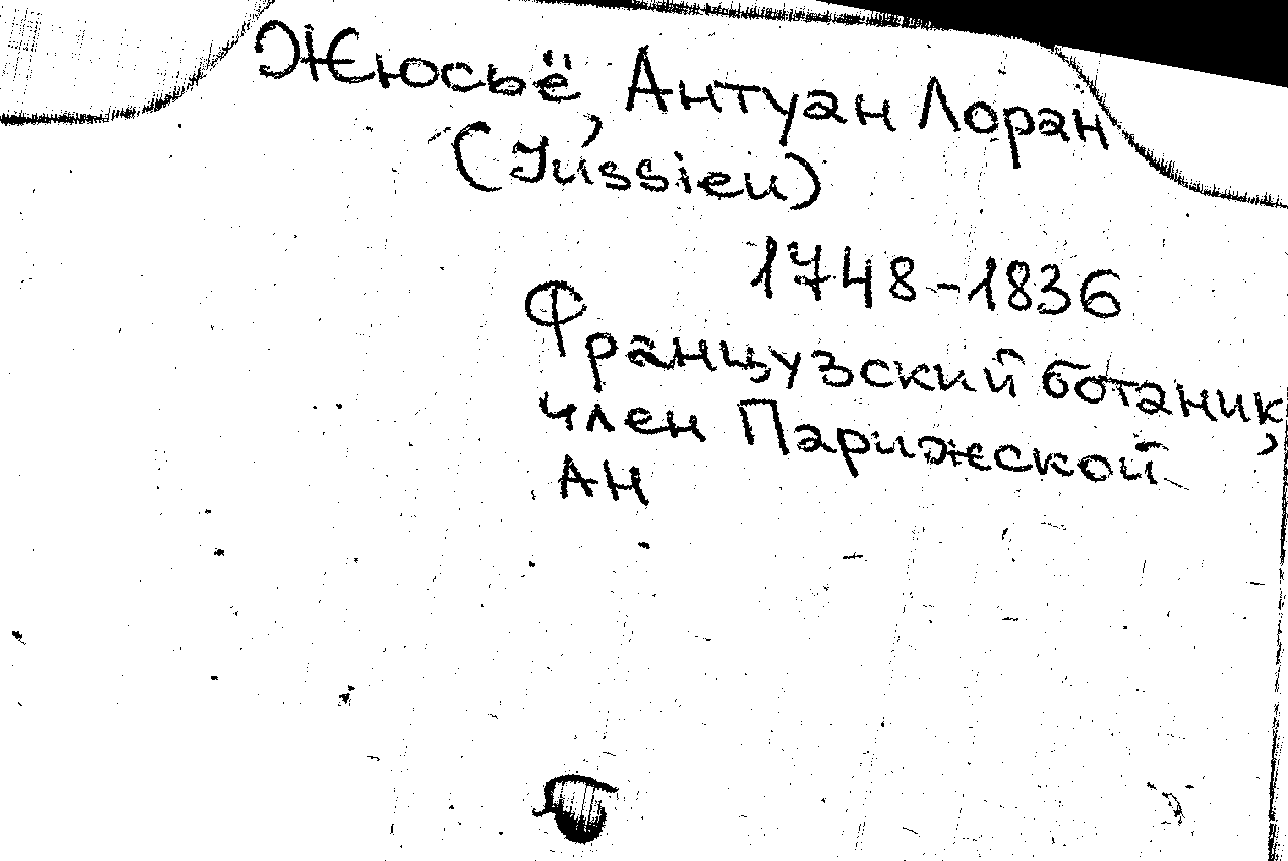 Жюсьё, Антуан Лоран
(Jussieu)
1748-1836
Французский ботаник,
член Парижской
АН